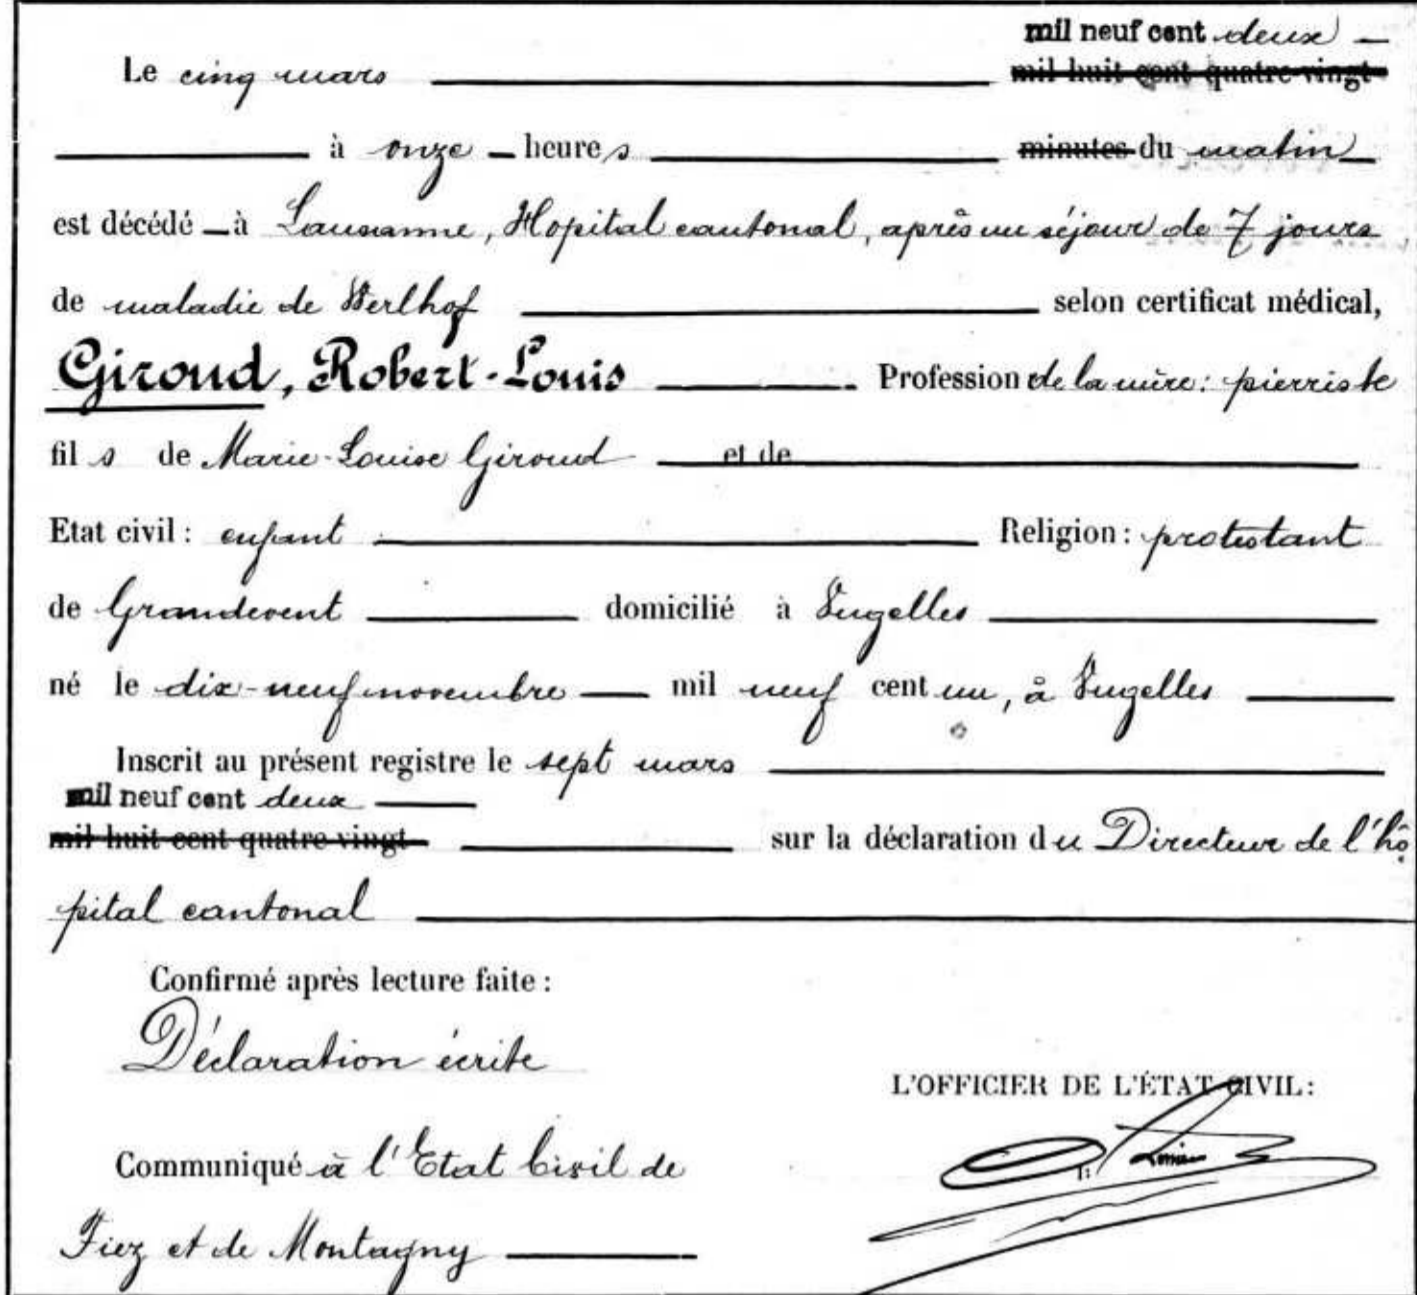 mil neuf cent deux
Le cinq mars mil huit cent quatre-vingt
à onze heures minutes du matin
est décédé à Lausanne, Hopital cantonal, après un séjour de 7 jours
de maladie de Werlhof selon certificat médical,
Giroud, Robert-Louis Profession de la mère: pierriste
fils de Marie-Louise Giroud et de
Etat civil: enfant Religion: protestant
de Grandevent domicilié à Vugelles
né le dix-neuf novembre mil neuf cent un, à Vugelles
Inscrit au présent registre le sept mars
mil neuf cent deux
mil huit cent quatre-vingt sur la déclaration du Directeur de l'hô
pital cantonal
Confirmé après lecture faite:
Déclaration écrite
L'OFFICIER DE L'ÉTAT CIVIL:
Communiqué à l'Etat Civil de
Fiez et de Montagny